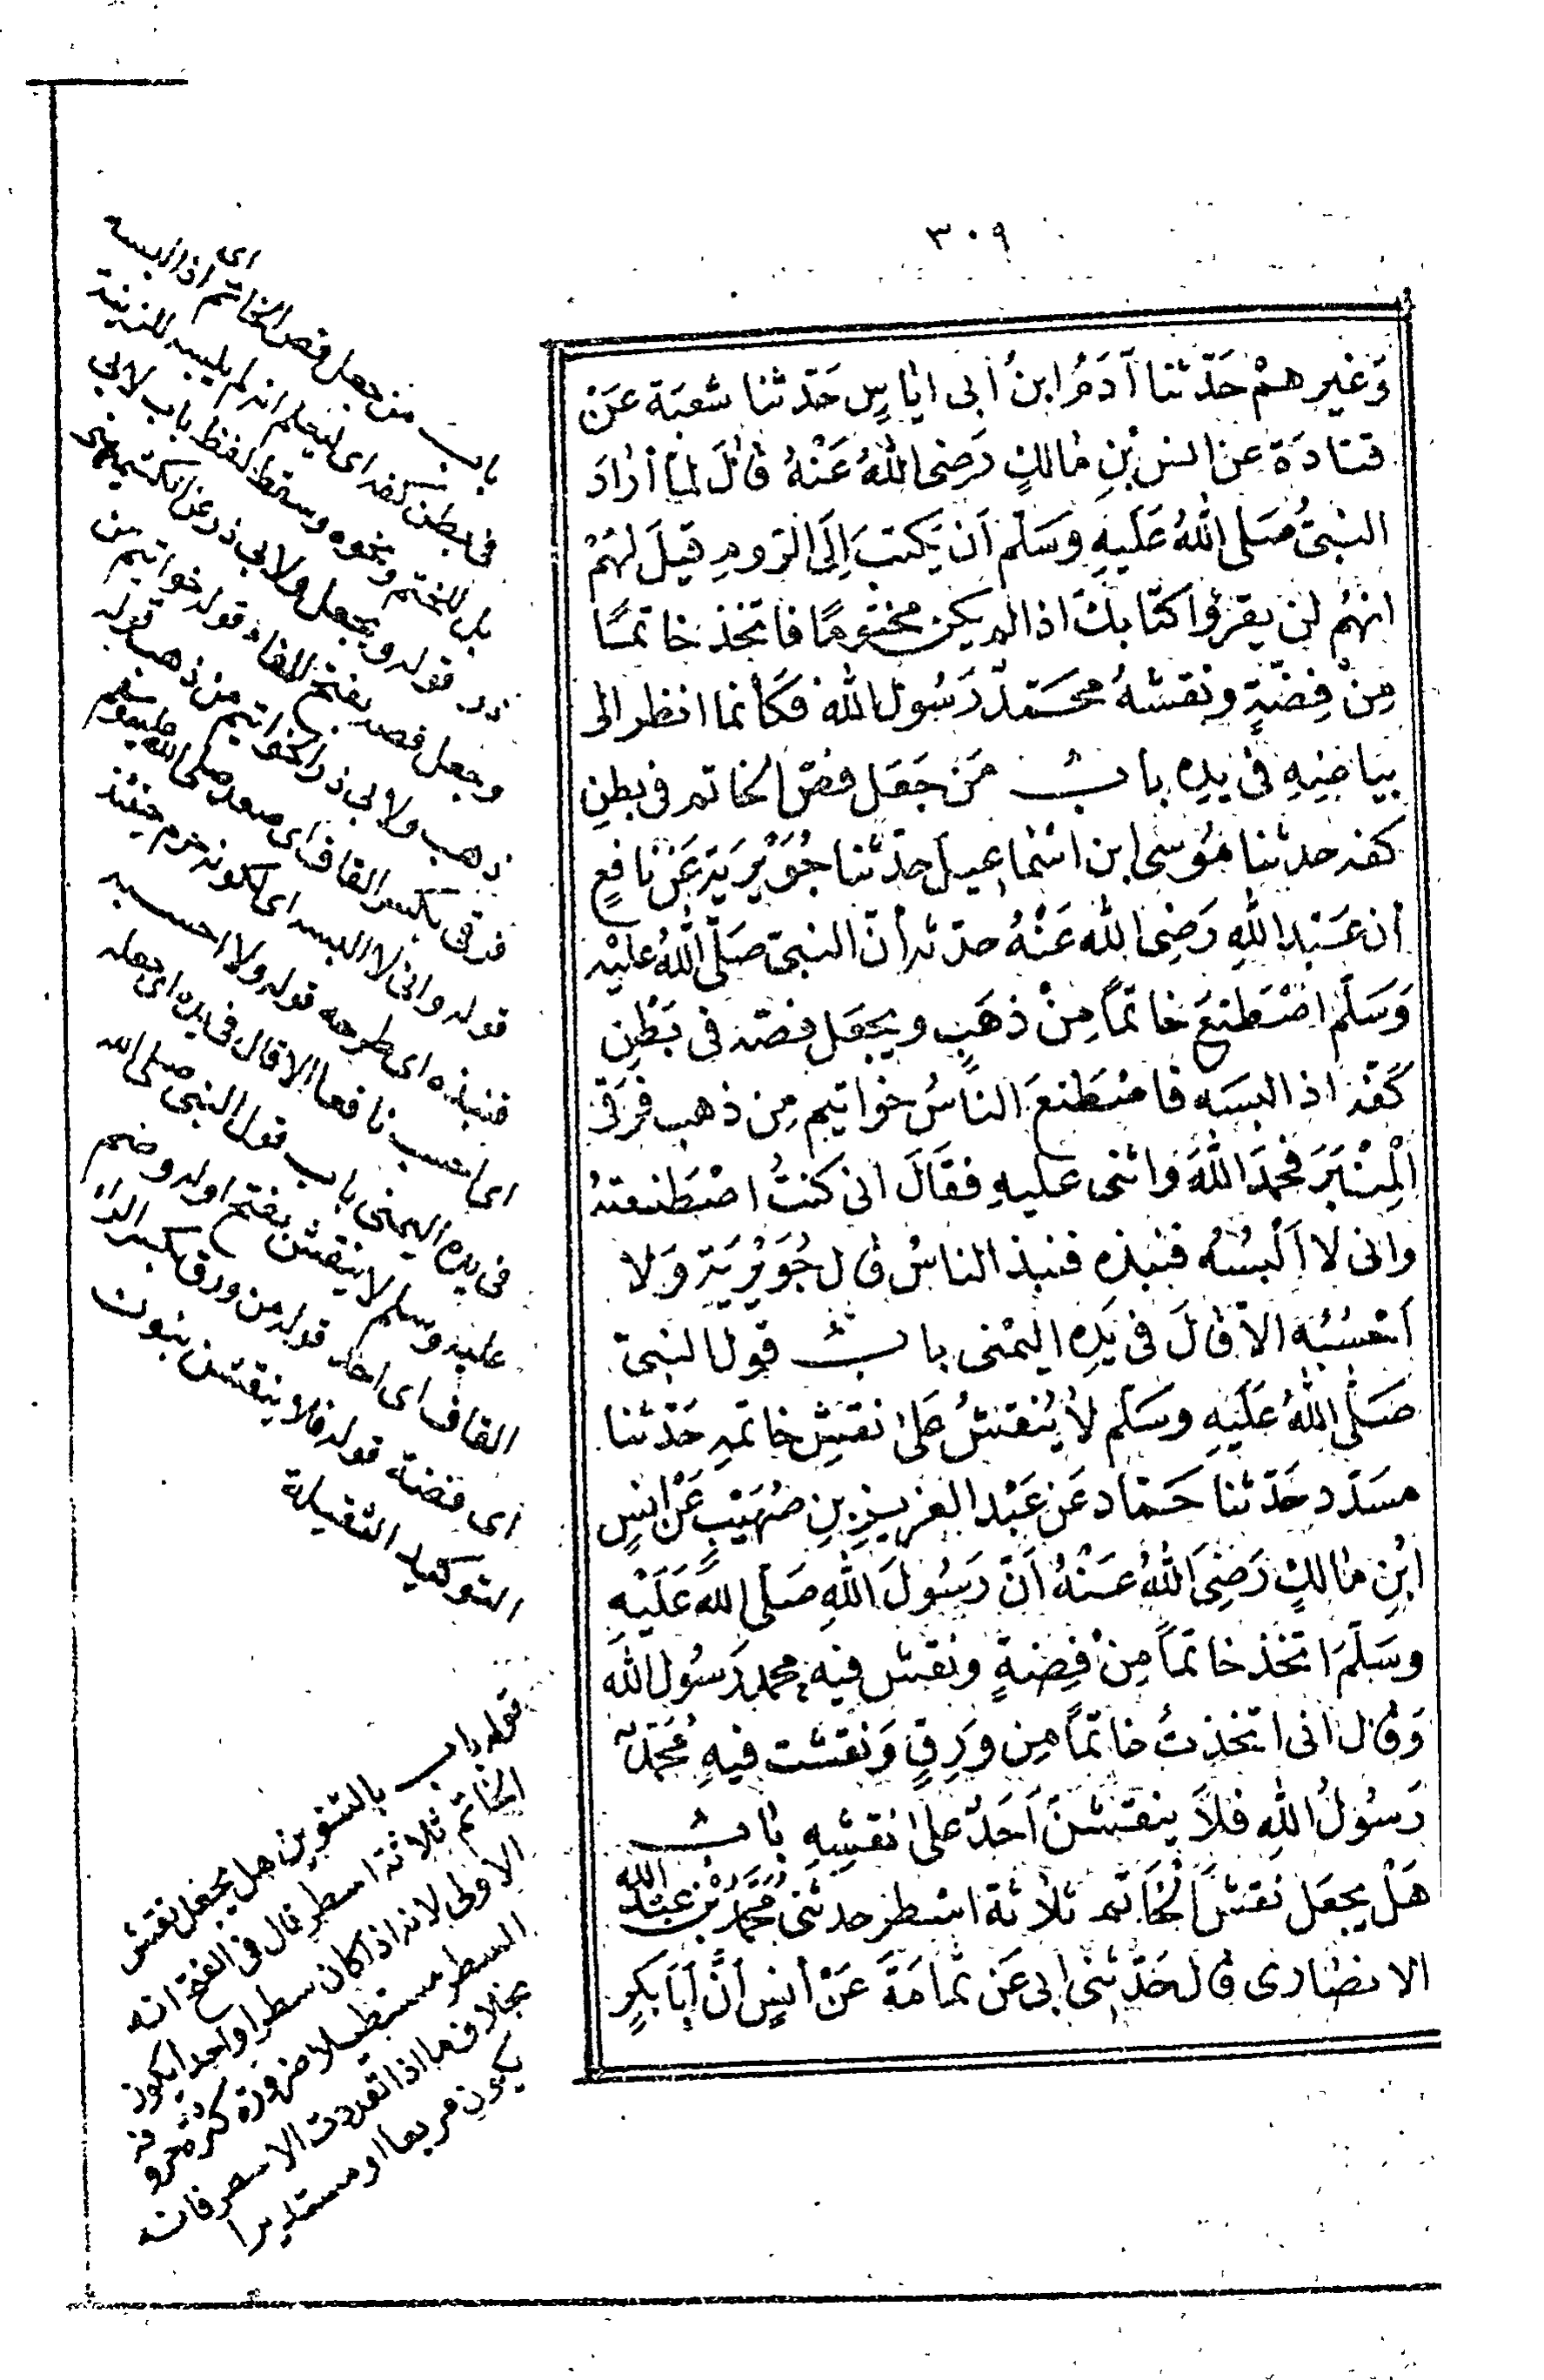 ٣٠٩
وَغيرِهمْ حَدّثنا آدَمُ ابنُ أبى اياسٍ حَدّثنا شعبَة عَنْ
قتادَة عنْ انس بْنِ مالكٍ رَضى اللهُ عَنْهُ قالَ لمّا أرادَ
النبىُّ صَلى اللهُ عَليهِ وَسَلم اَن يَكتبَ اِلَى الرّومِ قيلَ لهُمْ
انهُم لن يقرؤا كتابكَ اذا لم يكن مختومًا فاتخذ خاتمًا
مِنْ فِضّةٍ ونقشهُ محَمّدٌ رَسُول الله فكأنما انظر الى
بياضِهِ فى يدِه بابُ مَن جَعَل فصّ الخاتم فى بطنِ
كفه حدثنا مُوسى ابن اسْماعيل حَدّثنا جُوَيْريَة عَنْ نافعٍ
أن عَبْد اللهِ رَضِى الله عَنْهُ حدّثه أنّ النبىّ صَلّى اللهُ عليْه
وَسَلّم اصْطنعَ خاتماً مِنْ ذهَبٍ ويجعَل فصّه فى بَطْنِ
كفّه اذا لبسَه فاصْطَنعَ الناسُ خواتيم مِن ذهب فرَقى
اَلْمِنْبَرَ فحمدَ اللهَ واثنى عليهِ فقالَ انى كنتُ اصْطنعتهُ
وانى لا اَلْبسُهُ فنبذه فنبذ الناسُ قال جُوَيْريَة وَلا
اَحْسُبُه الا قالَ فى يَدِه اليمْنى بابُ قول النبىّ
صَلّى اللهُ عَليَهِ وسَلم لا يُنقشُ على نقشِ خاتمهِ حَدّثنا
مسَدّد حَدّثنا حَمّاد عَن عَبْد العزيزِ بنِ صُهَيْبٍ عَنْ انسٍ
ابْنِ مالكٍ رَضِىَ اللهُ عَنْهُ اَنّ رَسُولَ اللهِ صَلّى اللهَ عَلَيْهِ
وسَلّمَ اتخذ خاتماً مِنْ فِضةٍ ونقش فيه محمد رَسُول الله
وَقال انى اتخذتُ خاتماً مِن وَرِقٍ وَنقشت فيهِ مُحَمّدٌ
رَسوُلُ اللهِ فلاَ ينقشنّ اَحَدٌ على نقشِهِ بابُ
هَلْ يجعَل نقشَ الْخَاتم ثلاثة اسْطر حدثنى مُحَمَّدُ بْن عَبْد الله
الانصَارى قال حَدّثنى ابى عَن ثمامَةَ عَنْ أنسٍ أنَّ اَبَا بَكرٍ
باب من جعل فص الخاتم اى اذا لبسه
فى بطن كفه اى ليعلم انه لم يلبسه للزينة
بل للختم ونحوه وسقط لفظ باب لابى
ذر قوله ويجعل ولابى ذر عن الكشميهنى
وجعل فصه بفتح الفاء قوله خواتيم من
ذهب ولابى ذر الخواتيم من ذهب قوله
فرقى بكسر القاف اى صعد صلى الله عليه وسلم
قوله وانى لا البسه اى لكونه حرم حينئذ
فنبذه اى طرحه قوله ولا احسبه
اى احسب نافعا الا قال فى يده اى جعله
فى يده اليمنى باب قول النبى صلى الله
عليه وسلم لا ينقش بفتح اوله وضم
القاف اى احد قوله من ورق بكسر الراء
اى فضة قوله فلا ينقشن بنون
التوكيد الثقيلة
قوله باب بالتنوين هل يجعل نقش
الخاتم ثلاثة اسطر قال فى الفتح انه
الاولى لانه اذا كان سطرا واحدا يكون
السطر مستطيلا ضرورة كثرة
بخلاف ما اذا تعددت الاسطر فانه
يكون مربعا او مستديرا